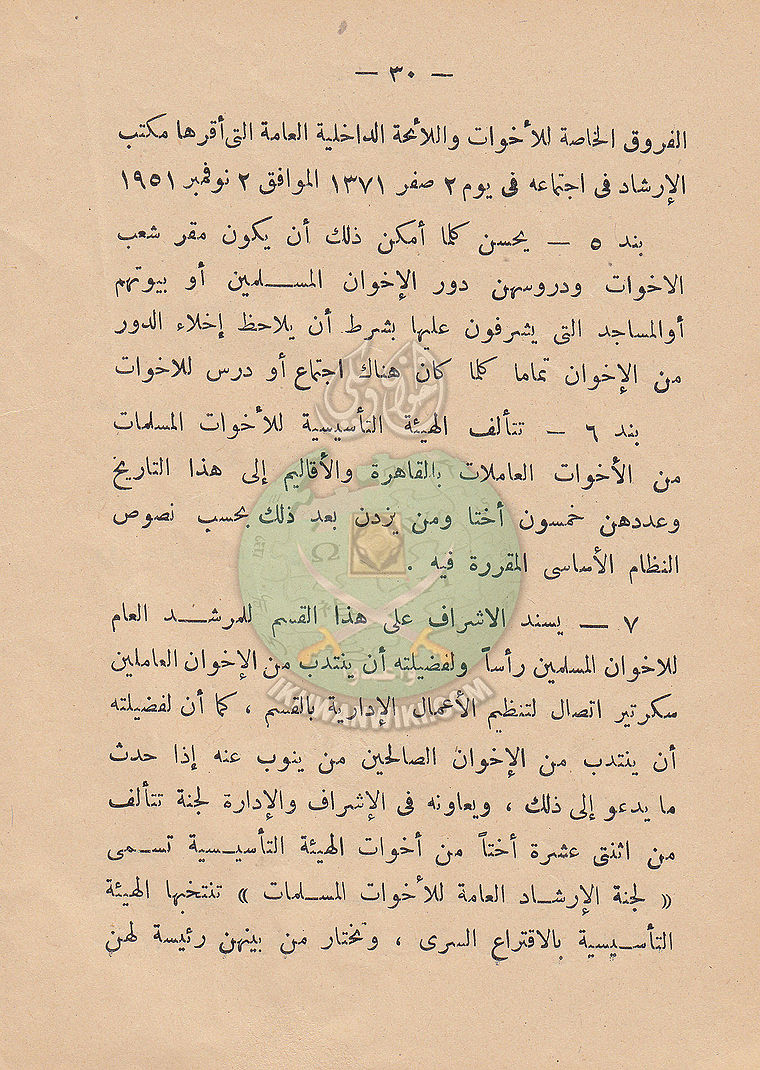 — ٣٠ —
الفروق الخاصة للأخوات واللائحة الداخلية العامة التى أقرها مكتب
الإرشاد فى اجتماعه فى يوم ٢ صفر ١٣٧١ الموافق ٢ نوفمبر ١٩٥١
بند ٥ — يحسن كلما أمكن ذلك أن يكون مقر شعب
الاخوات ودروسهن دور الإخوان المسلمين أو بيوتهم
أوالمساجد التى يشرفون عليها بشرط أن يلاحظ إخلاء الدور
من الإخوان تماما كلما كان هناك اجتماع أو درس للاخوات
بند ٦ — تتألف الهيئة التأسيسية للأخوات المسلمات
من الأخوات العاملات بالقاهرة والأقاليم إلى هذا التاريخ
وعددهن خمسون أختا ومن يزدن بعد ذلك بحسب نصوص
النظام الأساسى المقررة فيه .
٧ — يسند الاشراف على هذا القسم للمرشد العام
للاخوان المسلمين رأساً ولفضيلته أن ينتدب من الإخوان العاملين
IKHWANWIKI.COM
سكرتير اتصال لتنظيم الأعمال الإدارية بالقسم ، كما أن لفضيلته
أن ينتدب من الإخوان الصالحين من ينوب عنه إذا حدث
ما يدعو إلى ذلك ، ويعاونه فى الإشراف والإدارة لجنة تتألف
من اثنتى عشرة أختاً من أخوات الهيئة التأسيسية تسمى
« لجنة الإرشاد العامة للأخوات المسلمات » تنتخبها الهيئة
التأسيسية بالاقتراع السرى ، وتختار من بينهن رئيسة لهن